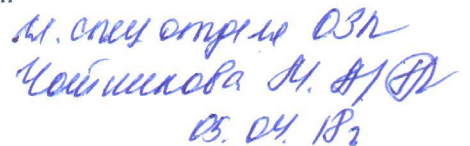 гл. спец отдела ОЗП
Чайникова М.
05.04.18г